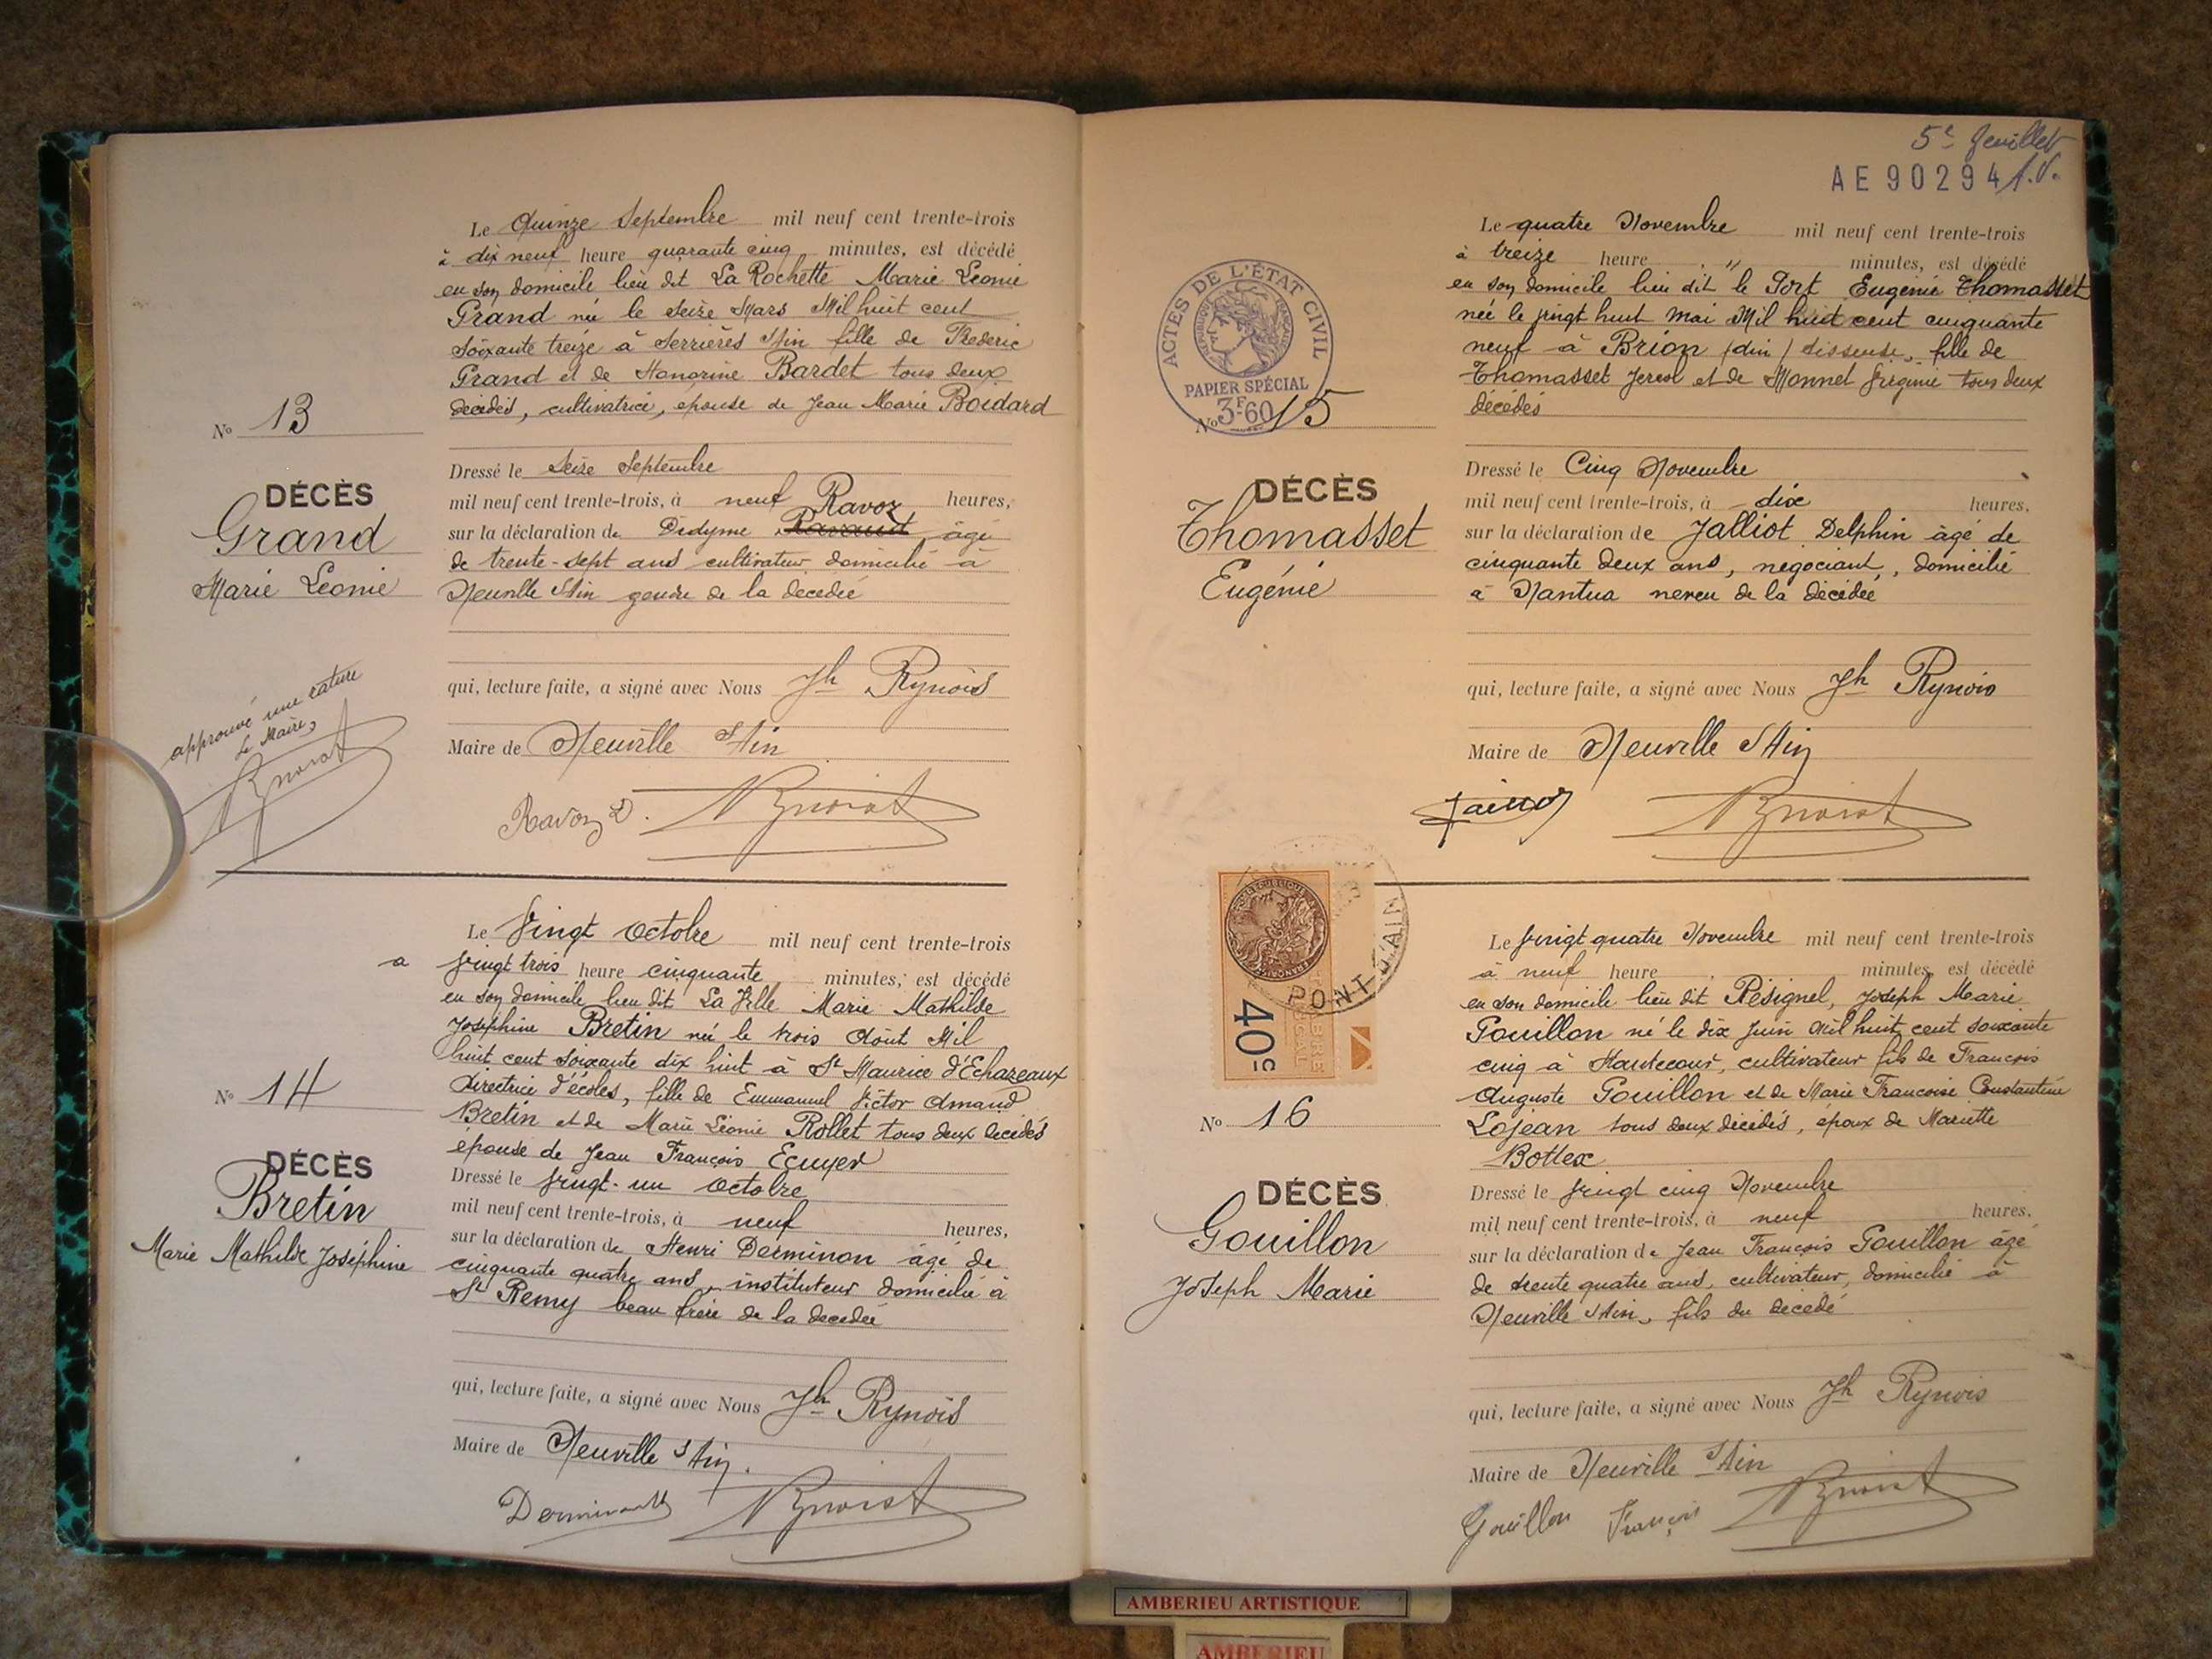 Le Quinze Septembre mil neuf cent trente-trois
à dix neuf heure quarante cinq minutes, est décédé
en son domicile lieu dit La Rochette Marie Léonie
Grand née le seize Mars Mil huit cent
soixante treize à Serrières s/Ain fille de Frederic
Grand et de Honorine Bardet tous deux
décédés, cultivatrice, épouse de Jean Marie Boidard
No 13
DÉCÈS
Grand
Marie Leonie
Dressé le Seize Septembre
mil neuf cent trente-trois, à neuf heures,
Ravoz
sur la déclaration de Didyme âgé
de trente-sept ans cultivateur domicilié à
Neuville s/Ain gendre de la décédée
approuvé une rature
Le Maire,
qui, lecture faite, a signé avec Nous Jh Rynois
Maire de Neuville s/Ain
Ravoz D.
Le Vingt Octobre mil neuf cent trente-trois
a vingt trois heure cinquante minutes, est décédé
en son domicile lieu dit La Ville Marie Mathilde
Joséphine Bretin née le trois Août Mil
huit cent soixante dix huit à St Maurice d'Echazeaux
Directrice d'écoles, fille de Emmanuel Victor Amand
Bretin et de Marie Léonie Rollet tous deux décédés
epouse de Jean François Ecuyer
No 14
DÉCÈS
Bretin
Marie Mathilde Joséphine
Dressé le vingt-un Octobre
mil neuf cent trente-trois, à neuf heures,
sur la déclaration de Henri Derminon âgé de
cinquante quatre ans, instituteur domicilié à
St Remy beau frère de la decedée
qui, lecture faite, a signé avec Nous Jh Rynois
Maire de Neuville s/Ain.
5e feuillet
AE 90294
Le quatre Novembre mil neuf cent trente-trois
à treize heure " minutes, est décédé
en son domicile lieu dit le Port Eugénie Thomasset
née le vingt huit Mai Mil huit cent cinquante
neuf à Brion (Ain) fille de
Thomasset et de Monnet Virginie tous deux
décédés
ACTES DE L'ÉTAT CIVIL
RÉPUBLIQUE FRANÇAISE
PAPIER SPÉCIAL
3F60
No 15
DÉCÈS
Thomasset
Eugénie
Dressé le Cinq Novembre
mil neuf cent trente-trois, à dix heures,
sur la déclaration de Jalliot Delphin âgé de
cinquante deux ans, negociant, domicilié
à Nantua neveu de la décédée
qui, lecture faite, a signé avec Nous Jh Rynois
Maire de Neuville s/Ain
PONT D'AIN
40c
Le vingt quatre Novembre mil neuf cent trente-trois
à neuf heure minutes, est décédé
en son domicile lieu dit Résignel, Joseph Marie
Gouillon né le dix Juin Mil huit cent soixante
cinq à Hautecour, cultivateur fils de François
Auguste Gouillon et de Marie Françoise Constantine
Lojean tous deux décédés, époux de Mariette
Bottex
No 16
DÉCÈS
Gouillon
Joseph Marie
Dressé le vingt cinq Novembre
mil neuf cent trente-trois, à neuf heures,
sur la déclaration de Jean François Gouillon âgé
de trente quatre ans, cultivateur, domicilié à
Neuville s/Ain, fils du décédé
qui, lecture faite, a signé avec Nous Jh Rynois
Maire de Neuville s/Ain
Gouillon François
AMBERIEU ARTISTIQUE
AMBERIEU